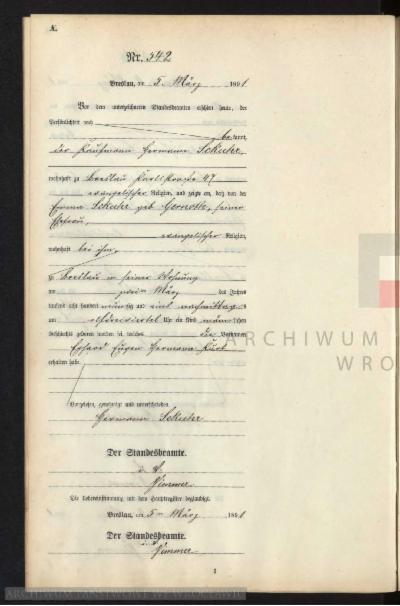 A.
Nr. 542
Breslau, am 5. März 1891
Vor dem unterzeichneten Standesbeamten erschien heute, der
Persönlichkeit nach
bekannt,
der Kaufmann Hermann
wohnhaft zu Breslau 47
evangelischer Religion, und zeigte an, daß von der
Emma geb. seiner
Ehefrau,
evangelischer Religion,
wohnhaft bei ihm,
zu Breslau in seiner Wohnung
am März des Jahres
tausend acht hundert neunzig und eins nachmittags
um Uhr ein Kind männlichen
Geschlechts geboren worden sei, welches die Vornamen
Erhard Eugen Hermann Kurt
erhalten habe.
Vorgelesen, genehmigt und unterschrieben
Hermann
Der Standesbeamte.
Die Uebereinstimmung mit dem Hauptregister beglaubigt.
Breslau, am 5. März 1891
Der Standesbeamte.
ARCHIWUM
WRO
ARCHIWUM PAŃSTWOWE WE WROCŁAWIU